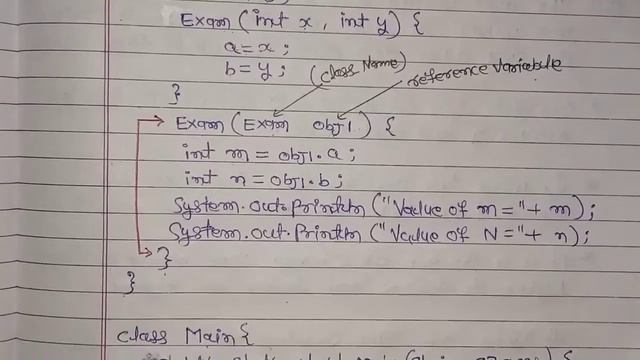 Exam (int x, int y) {
a = x ;
b = y ; (Class Name) reference Variable
}
Exam (Exam Obj1) {
int m = Obj1.a ;
int n = Obj1.b ;
System.out.println ("Value of m = "+ m);
System.out.println ("Value of N = "+ n);
}
}
class Main {